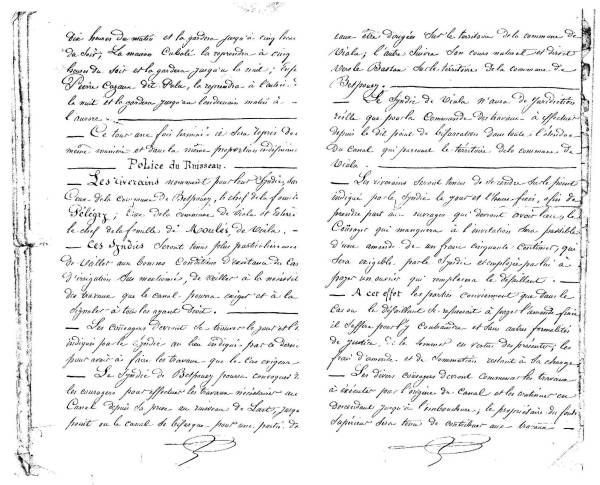 dix heures du matin et la gardera jusqu'à cinq heures
du soir; La maison Cabole la reprendra à cinq
heures du soir et la gardera jusqu'à la nuit; enfin
Pierre Cazaux dit Pula, la reprendra à l'entrée de
la nuit et la gardera jusqu'au lendemain matin à
l'aurore.
— Ce tour une fois terminé il sera repris de
même manière et dans la même proportion
Police du Ruisseau.
— Les riverains nomment pour leur Syndic, sur
Ceux de la commune de Betpouey, le chef de la famille
Péligry; Ceux de la commune de Viala
le chef de la famille de Moulés de Viala.
— Ces Syndics seront tenus plus particulièrement
de veiller aux bonnes Conditions
d'irrigation sus mentionnés, de veiller à la nécessité
des travaux que le canal pourra exiger et à la
signaler à tous les ayant droit.
— Les co-usagers devront se trouver le jour et l'heure
indiqués par le Syndic au lieu indiqué par ce dernier
pour avoir à faire les travaux que le Cas exigera
— Le Syndic de Betpouey pourra convoquer
les co-usagers pour effectuer les travaux nécessaires au
Canal depuis sa prise au ruisseau de Lart, jusqu'au
point où le canal se partage pour une partie de
eaux être dirigée sur le territoire de la commune de
Viala; l'autre suivre son cours naturel et direct
vers le Bastan sur le territoire de la commune de
Betpouey.
— Le Syndic de Viala n'aura de juridiction
réelle que pour la Commande des travaux à effectuer
depuis le dit point de bifurcation dans toute l'étendue
du Canal qui parcourt le territoire de la commune de
Viala.
— Les riverains seront tenus de se rendre sur le point
indiqué par le Syndic le jour et l'heure fixés, afin de
prendre part aux ouvrages qui devront avoir lieu; le
Co-usager qui manquera à l'invitation sera passible
d'une amende de un franc cinquante centimes, qui
sera exigible par le Syndic et employée par lui à
payer un ouvrier qui remplacera le défaillant.
— A cet effet les parties conviennent que dans le
Cas où le défaillant se refuserait à payer l'amende fixée
il suffira pour l'y contraindre et sans autres formalités
de justice, de le sommer en vertu des présentes; les
frais d'amende et de sommation restant à sa charge
— Les divers co-usagers devront commencer les travaux
à exécuter par l'origine du Canal et les continuer en
descendant jusqu'à l'embouchure; le propriétaire du fonds
supérieur sera tenu de contribuer aux travaux